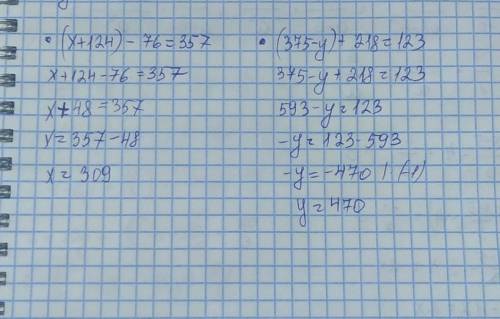 • (x+124) - 76 = 357
x+124-76 = 357
x+48 = 357
x = 357-48
x = 309
• (375-y) + 218 = 123
375-y+218 = 123
593-y = 123
-y = 123-593
-y = -470 | · (-1)
y = 470